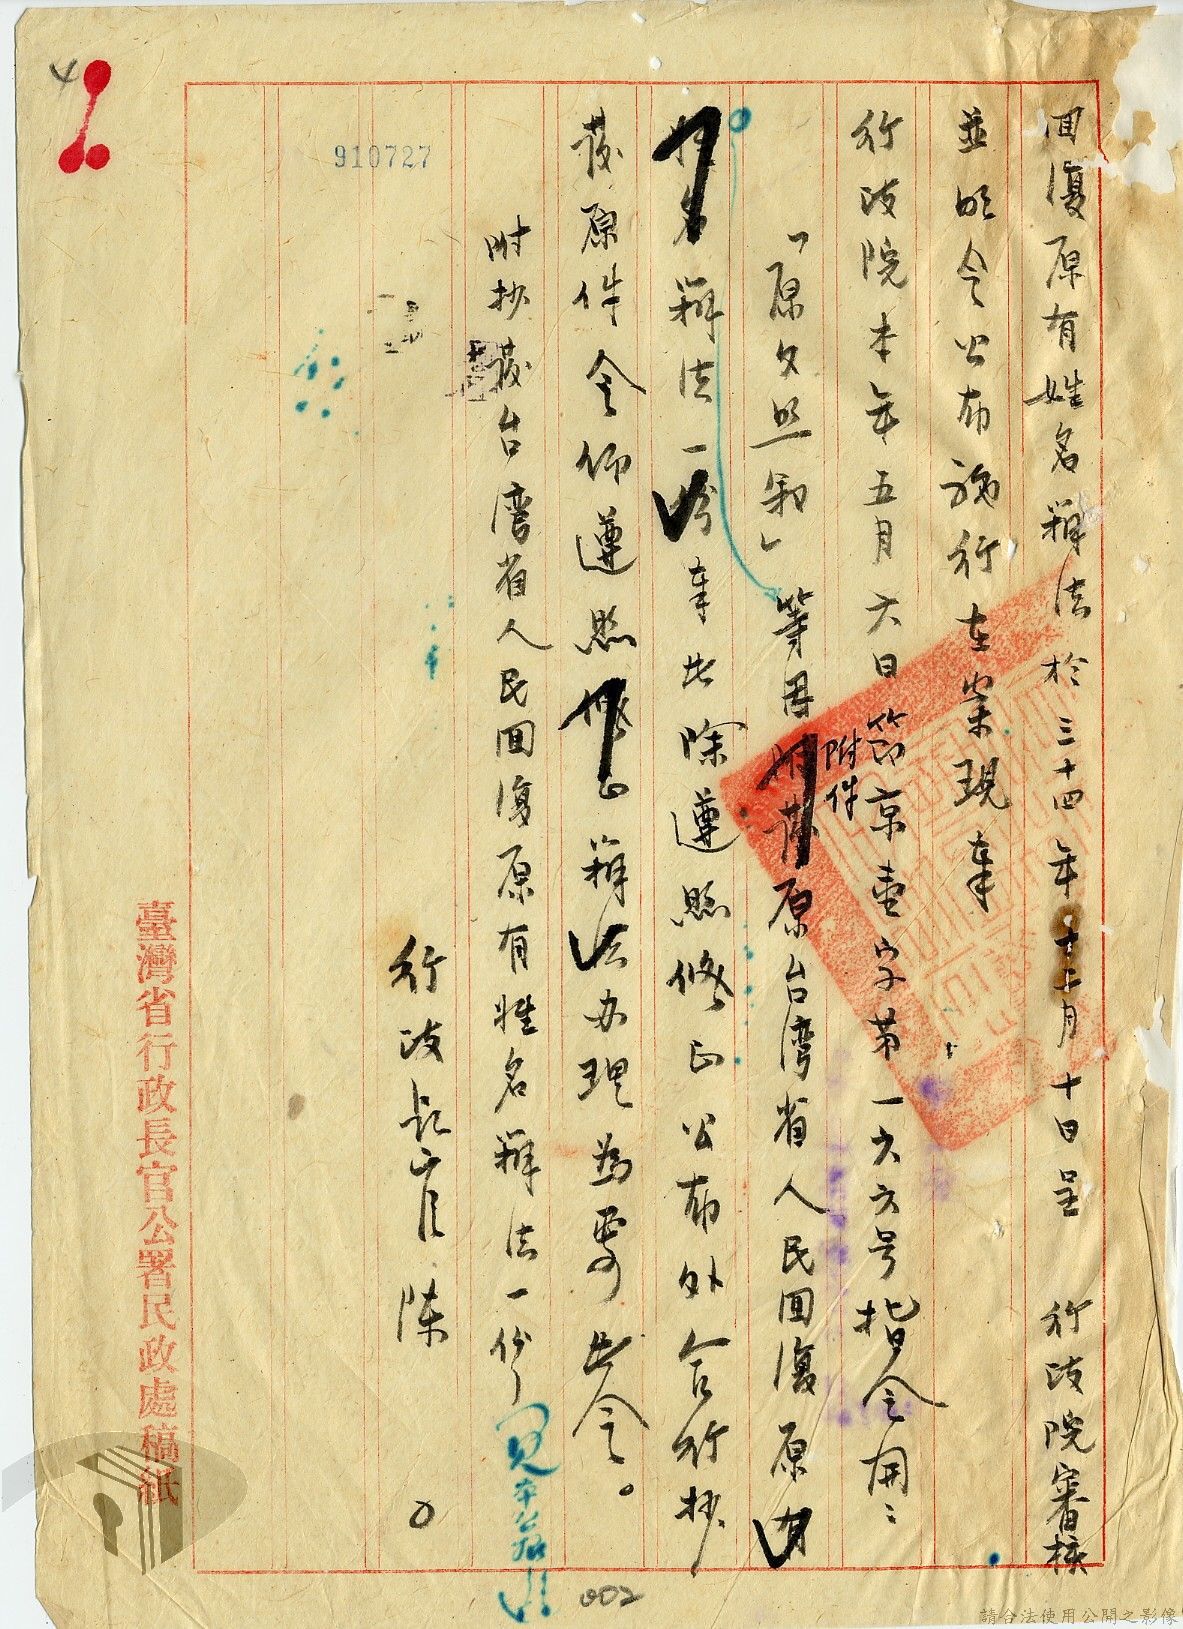 回復原有姓名辦法於三十四年十二月十日呈　行政院審核
並明令公布施行在案現奉
行政院本年五月六日節京壹字第一六六号指令開：
「原文照敘」等因附件附發原台湾省人民回復原有
姓名辦法一份奉此除遵照修正公布外合行抄
發原件令仰遵照修正辦法办理為要此令。
附抄發台湾省人民回復原有姓名辦法一份
行政長官陳〇
910727
臺灣省行政長官公署民政處稿紙
4
002
請合法使用公開之影像